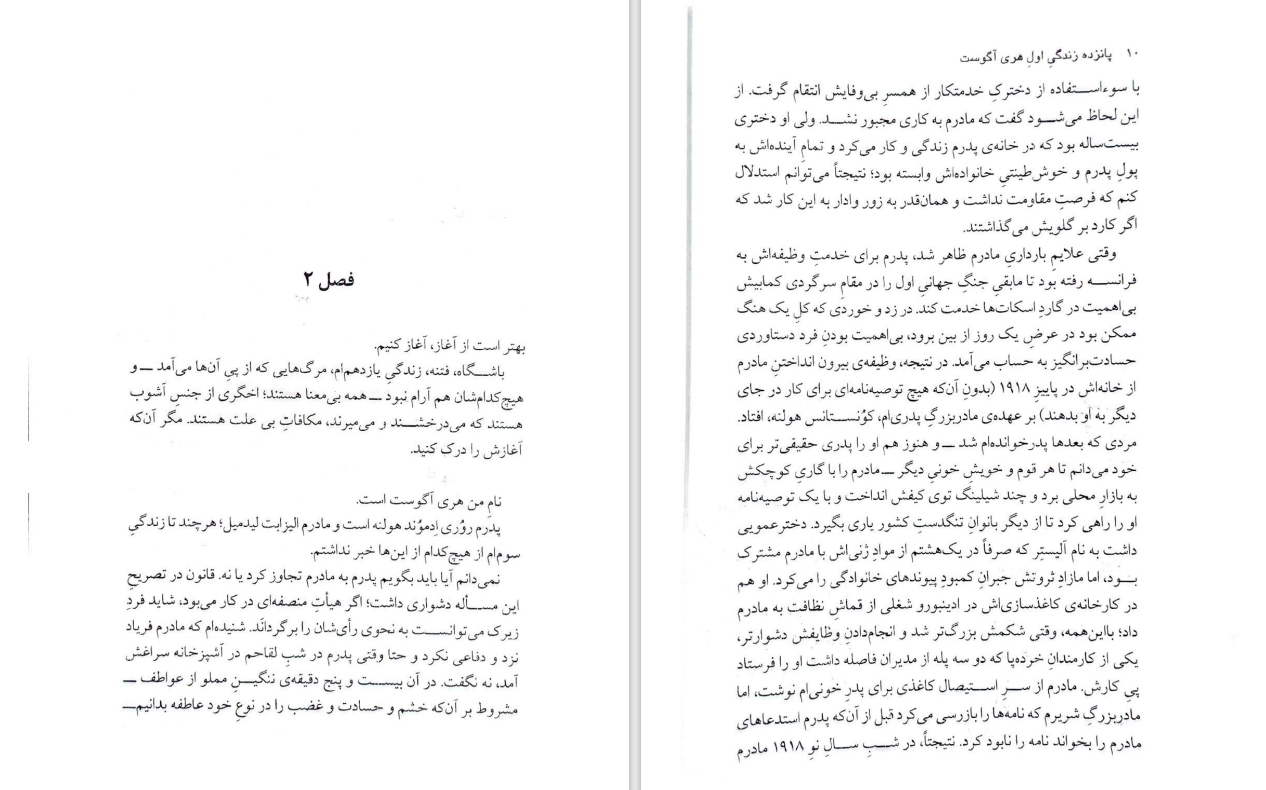 فصل ۲
بهتر است از آغاز، آغاز کنیم.
باشگاه، فتنه، زندگیِ یازدهم‌ام، مرگ‌هایی که از پیِ آن‌ها می‌آمد ــ و
هیچ‌کدام‌شان هم آرام نبود ــ همه بی‌معنا هستند؛ اخگری از جنسِ آشوب
هستند که می‌درخشند و می‌میرند، مکافاتِ بی علت هستند. مگر آن‌که
آغازش را درک کنید.
نامِ من هری آگوست است.
پدرم روُری اِدموُند هولنه است و مادرم الیزابت لیدمیل؛ هرچند تا زندگیِ
سوم‌ام از هیچ‌کدام از این‌ها خبر نداشتم.
نمی‌دانم آیا باید بگویم پدرم به مادرم تجاوز کرد یا نه. قانون در تصریحِ
این مسأله دشواری داشت؛ اگر هیأتِ منصفه‌ای در کار می‌بود، شاید فردِ
زیرک می‌توانست به نحوی رأی‌شان را برگردانَد. شنیده‌ام که مادرم فریاد
نزد و دفاعی نکرد و حتا وقتی پدرم در شبِ لقاحم در آشپزخانه سراغش
آمد، نه نگفت. در آن بیست و پنج دقیقه‌ی ننگینِ مملو از عواطف ــ
مشروط بر آن‌که خشم و حسادت و غضب را در نوعِ خود عاطفه بدانیم ــ
۱۰ پانزده زندگیِ اولِ هری آگوست
با سوءاستفاده از دخترکِ خدمتکار از همسرِ بی‌وفایش انتقام گرفت. از
این لحاظ می‌شود گفت که مادرم به کاری مجبور نشد. ولی او دختری
بیست‌ساله بود که در خانه‌ی پدرم زندگی و کار می‌کرد و تمامِ آینده‌اش به
پولِ پدرم و خوش‌طینتیِ خانواده‌اش وابسته بود؛ نتیجتاً می‌توانم استدلال
کنم که فرصتِ مقاومت نداشت و همان‌قدر به زور وادار به این کار شد که
اگر کارد بر گلویش می‌گذاشتند.
وقتی علایمِ بارداریِ مادرم ظاهر شد، پدرم برای خدمتِ وظیفه‌اش به
فرانسه رفته بود تا مابقیِ جنگِ جهانیِ اول را در مقامِ سرگردی کمابیش
بی‌اهمیت در گاردِ اسکات‌ها خدمت کند. در زد و خوردی که کلِ یک هنگ
ممکن بود در عرضِ یک روز از بین برود، بی‌اهمیت بودنِ فرد دستاوردی
حسادت‌برانگیز به حساب می‌آمد. در نتیجه، وظیفه‌ی بیرون انداختنِ مادرم
از خانه‌اش در پاییزِ ۱۹۱۸ (بدونِ آن‌که هیچ توصیه‌نامه‌ای برای کار در جای
دیگر به او بدهند) بر عهده‌ی مادربزرگِ پدری‌ام، کوُنستانس هولنه، افتاد.
مردی که بعدها پدرخوانده‌ام شد ــ و هنوز هم او را پدری حقیقی‌تر برای
خود می‌دانم تا هر قوم و خویشِ خونیِ دیگر ــ مادرم را با گاریِ کوچکش
به بازارِ محلی برد و چند شیلینگ توی کیفش انداخت و با یک توصیه‌نامه
او را راهی کرد تا از دیگر بانوانِ تنگدستِ کشور یاری بگیرد. دخترعمویی
داشت به نام آلیستِر که صرفاً در یک‌هشتم از موادِ ژنی‌اش با مادرم مشترک
بود، اما مازادِ ثروتش جبرانِ کمبودِ پیوندهای خانوادگی را می‌کرد. او هم
در کارخانه‌ی کاغذسازی‌اش در ادینبورو شغلی از قماشِ نظافت به مادرم
داد؛ بااین‌همه، وقتی شکمش بزرگ‌تر شد و انجام‌دادنِ وظایفش دشوارتر،
یکی از کارمندانِ خرده‌پا که دو سه پله از مدیران فاصله داشت او را فرستاد
پیِ کارش. مادرم از سرِ استیصال کاغذی برای پدرِ خونی‌ام نوشت، اما
مادربزرگِ شریرم که نامه‌ها را بازرسی می‌کرد قبل از آن‌که پدرم استدعاهای
مادرم را بخواند نامه را نابود کرد. نتیجتاً، در شبِ سالِ نوِ ۱۹۱۸ مادرم